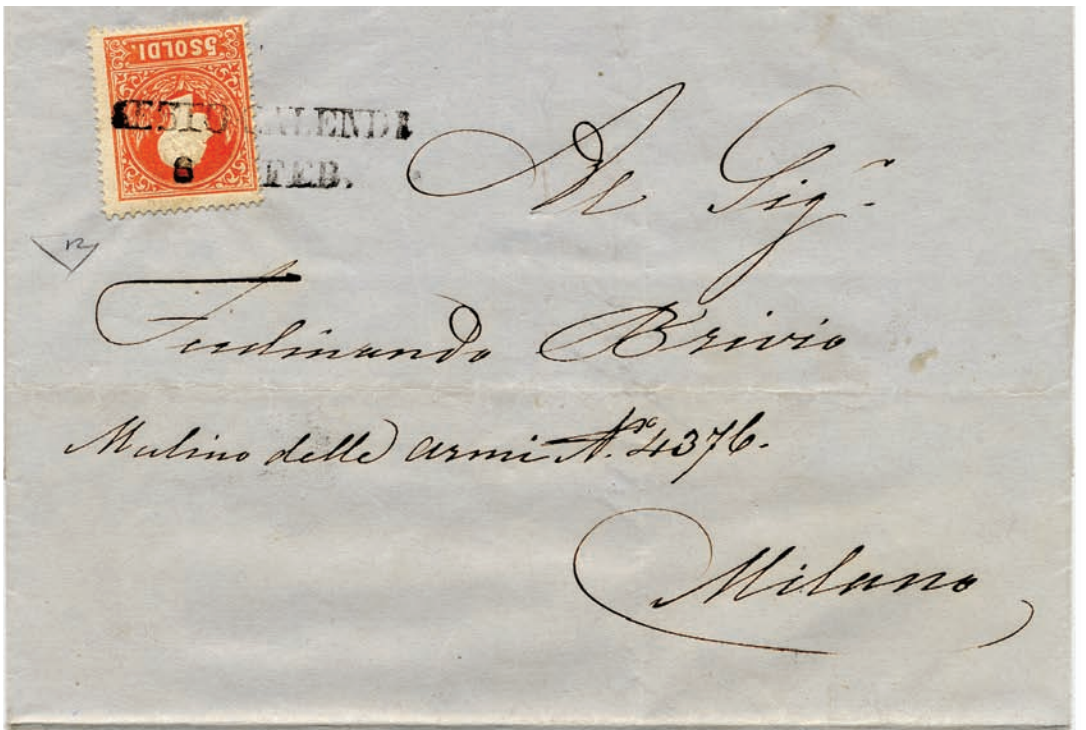 5 SOLDI.
SESTO CALENDE
8 FEB.
Al Sigr.
Ferdinando Brivio
Mulino delle Armi No. 4376.
Milano